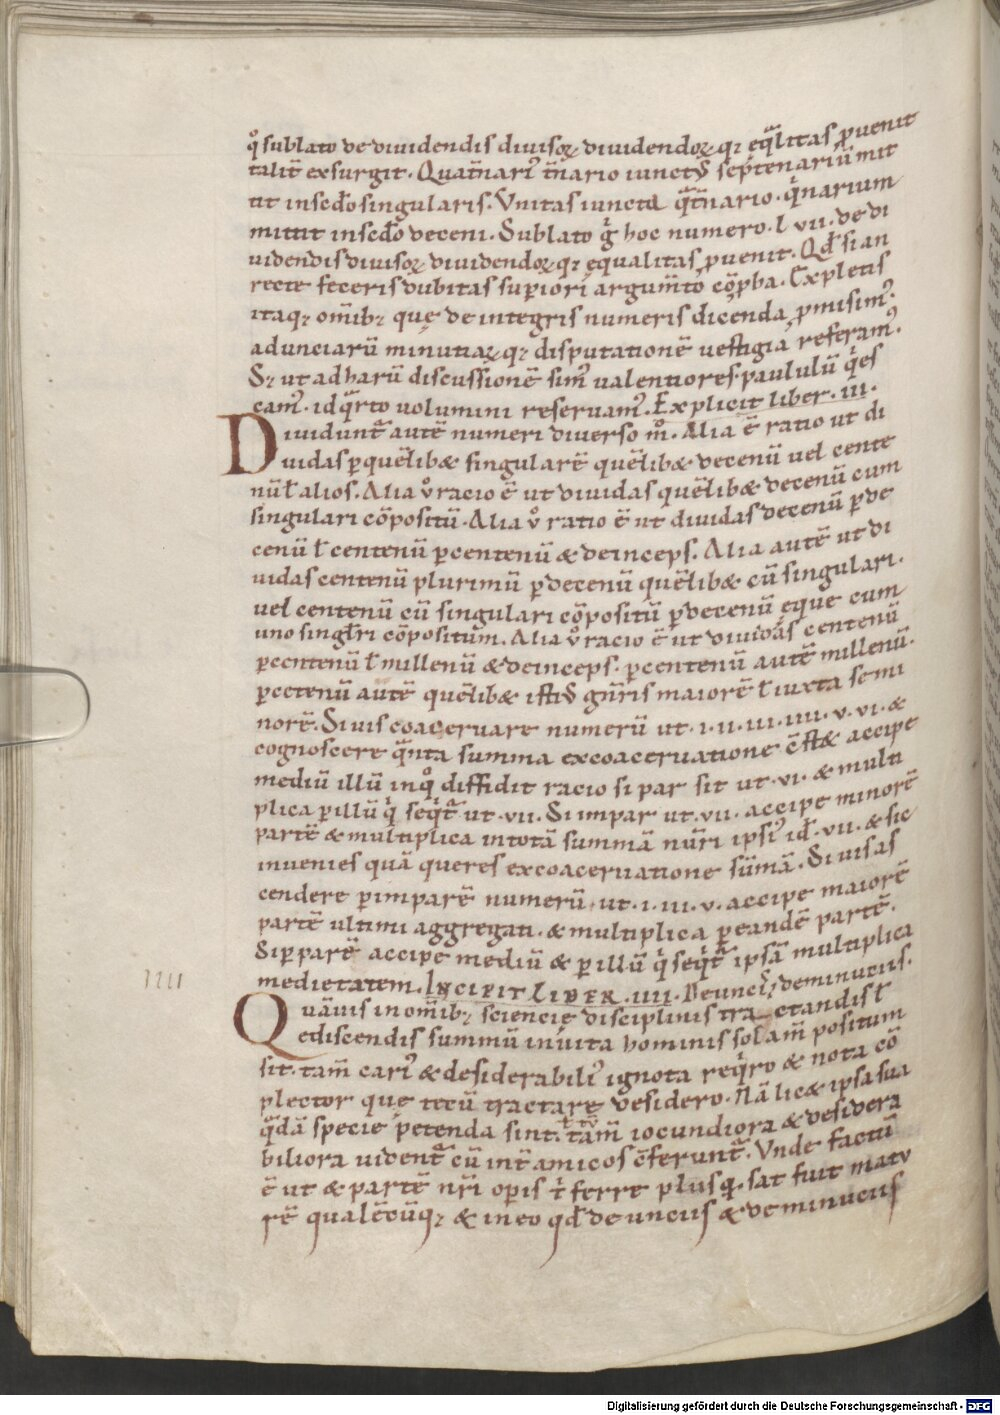 qͦ sublato de diuidendis diuisoꝝ diuidendoꝝ qꝫ eq̅litas ꝓuenit
talit̅ exsurgit. Quat̅nariꝰ t̅nario iunctꝰ septenariū mit
tit in sc̅do singularis. Vnitas iuncta q̅t̅nario. qͥnarium
mittit in sc̅do deceni. Sublato gͥ hoc numero. l vii. de di
uidendis diuisoꝝ diuidendoꝝ qꝫ ęqualitas ꝓuenit. Qd̅ si an
recte feceris dubitas supiori argum̅to cōꝓba. Expletis
itaqꝫ om̅ibꝫ que de integris numeris dicenda ꝓmisimꝰ.
ad unciarū minutiaꝝ qꝫ disputationē uestigia referamꝰ.
Sꝫ ut ad harū discussionē simꝰ ualentiores. paululū qͥes
camꝰ. id qͣrto uolumini reseruamꝰ. Explicit liber. iii.
Diuidunt᷑ autē numeri diuerso mͦ. Alia ē ratio ut di
uidas ꝑ quēlib& singularē quēlib& decenū uel cente
nū ł alios. Alia ůͦ racio ē ut diuidas quēlib& decenū cum
singulari cōpositū. Alia ůͦ ratio ē ut diuidas decenū ꝑ de
cenū ł centenū ꝑ centenū & deinceps. Alia autē ut di
uidas centenū plurimū ꝑ decenū quēlib& cū singulari.
uel centenū cū singulari cōpositū ꝑ decenū ęque cum
uno singlͣri cōpositum. Alia ůͦ racio ē ut diuidas centenū
ꝑ centenū ł millenū & deinceps. ꝑ centenū autē millenū.
ꝑ cētenū autē quēlib& istiꝰ gn̅ris maiorē ł iuxta se mi
norē. Si uis coaceruare numerū ut. i. ii. iii. iiii. v. vi. &
cognoscere qͣnta summa ex coaceruatione ē st& accipe
mediū illū in qͦ diffidit racio si par sit ut. vi. & multi
plica ꝑ illū qͥ seqͥt᷑ ut. vii. Si impar ut. vii. accipe minorē
partē & multiplica in totā summā nūri ipsiꝰ id̅. vii. & sic
inuenies quā queres ex coaceruatione sūmā. Si uis as
cendere ꝑ imparē numerū. ut. i. iii. v. accipe maiorē
partē ultimi aggregati. & multiplica ꝑ eandē partē.
Si ꝑ parē accipe mediū & ꝑ illū qͥ seqͥt᷑ ipsā multiplica
medietatem. Incipit liber. iiii. De unciis & de minutiis.
iiii
Quāuis in om̅ibꝫ sciencię disciplinis tractandis ł
ediscendis summū in uita hominis solam̅ positum
sit. tam̅ cariꝰ & desiderabiliꝰ ignota reqͥro & nota cō
plector que tecū tractare desidero. Nā lic& ipsa sua
qͣdā specie petenda sint. tam̅ iocundiora & desidera
biliora uident᷑ cū int̅ amicos c̅ferunt᷑. Vnde factū
ē ut & partē nr̅i opis t̅ ferre plus qͣ. sat fuit matu
rē qualēcūqꝫ & in eo qd̅ de unciis & de minuciis